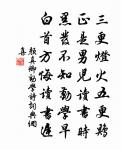 三更燈火五更雞
正是男兒讀書時
黑髮不知勤學早
白首方悔讀書遲
顏真卿勸學詩